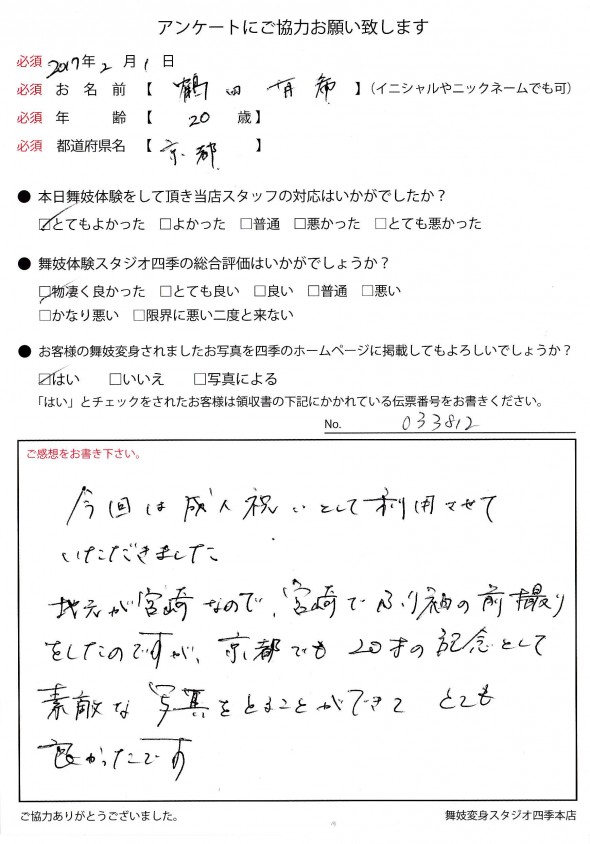 アンケートにご協力お願い致します
必須 2017年 2 月 1 日
必須 お 名 前 【 鶴田 有希 】（イニシャルやニックネームでも可）
必須 年 齢 【 20 歳】
必須 都道府県名 【 京都 】
● 本日舞妓体験をして頂き当店スタッフの対応はいかがでしたか？
☑とてもよかった □よかった □普通 □悪かった □とても悪かった
● 舞妓体験スタジオ四季の総合評価はいかがでしょうか？
☑物凄く良かった □とても良い □良い □普通 □悪い
□かなり悪い □限界に悪い二度と来ない
● お客様の舞妓変身されましたお写真を四季のホームページに掲載してもよろしいでしょうか？
☑はい □いいえ □写真による
「はい」とチェックをされたお客様は領収書の下記にかかれている伝票番号をお書きください。
No. 033812
ご感想をお書き下さい。
今回は成人祝いとして利用させて
いただきました
地元が宮崎なので、宮崎でふり袖の前撮り
をしたのですが、京都でも20才の記念として
素敵な写真をとることができて とても
良かったです
ご協力ありがとうございました。
舞妓変身スタジオ四季本店